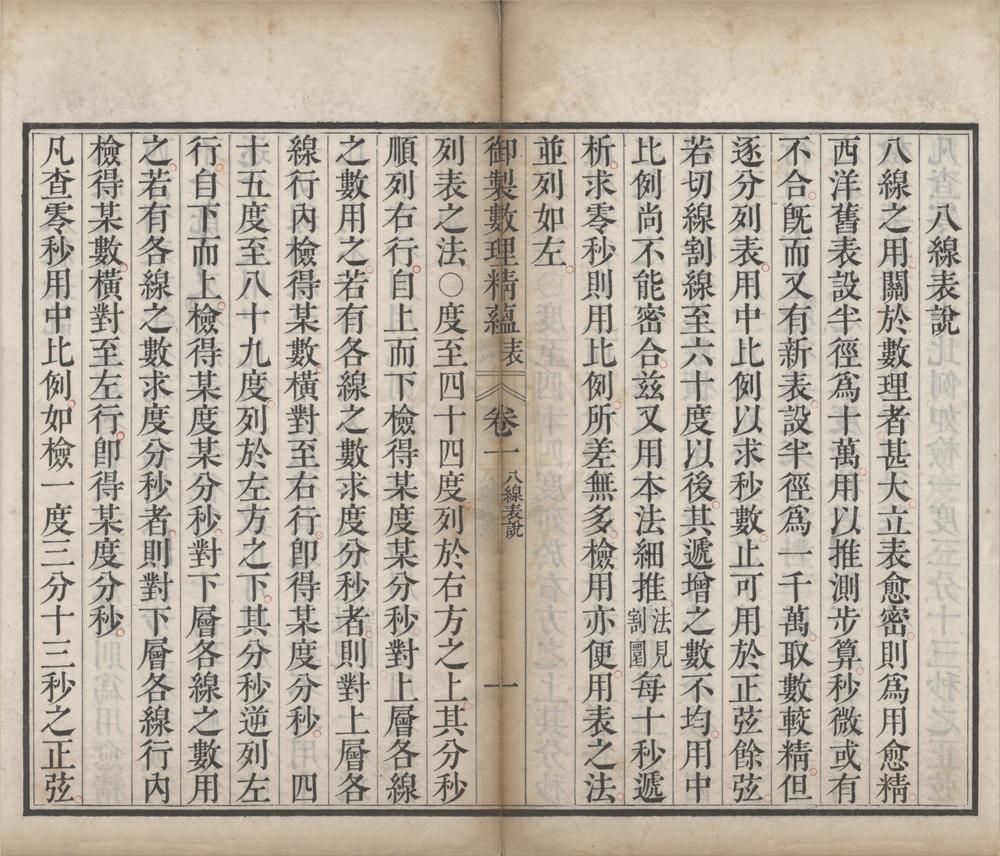 八線表說
八線之用關於數理者甚大立表愈密則爲用愈精
西洋舊表設半徑爲十萬用以推測步算秒微或有
不合旣而又有新表設半徑爲一千萬取數較精但
逐分列表用中比例以求秒數止可用於正弦餘弦
若切線割線至六十度以後其遞增之數不均用中
比例尚不能密合兹又用本法細推法見割圜每十秒遞
析求零秒則用比例所差無多檢用亦便用表之法
並列如左
御製數理精蘊 表 卷一 八線表說 一
列表之法〇度至四十四度列於右方之上其分秒
順列右行自上而下檢得某度某分秒對上層各線
之數用之若有各線之數求度分秒者則對上層各
線行內檢得某數橫對至右行卽得某度分秒 四
十五度至八十九度列於左方之下其分秒逆列左
行自下而上檢得某度某分秒對下層各線之數用
之若有各線之數求度分秒者則對下層各線行內
檢得某數橫對至左行卽得某度分秒
凡查零秒用中比例如檢一度三分十三秒之正弦